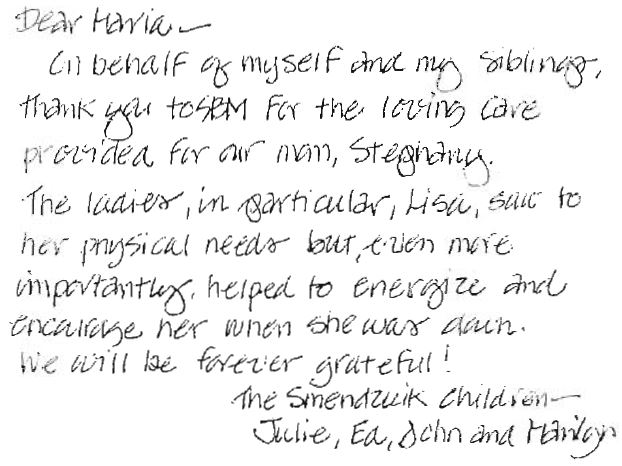 Dear Maria—
On behalf of myself and my siblings,
thank you to SBM for the loving care
provided for our mom, Stephany.
The ladies, in particular, Lisa, saw to
her physical needs but, even more
importantly, helped to energize and
encourage her when she was down.
We will be forever grateful!
The Smendzuik children—
Julie, Ed, John and Marilyn